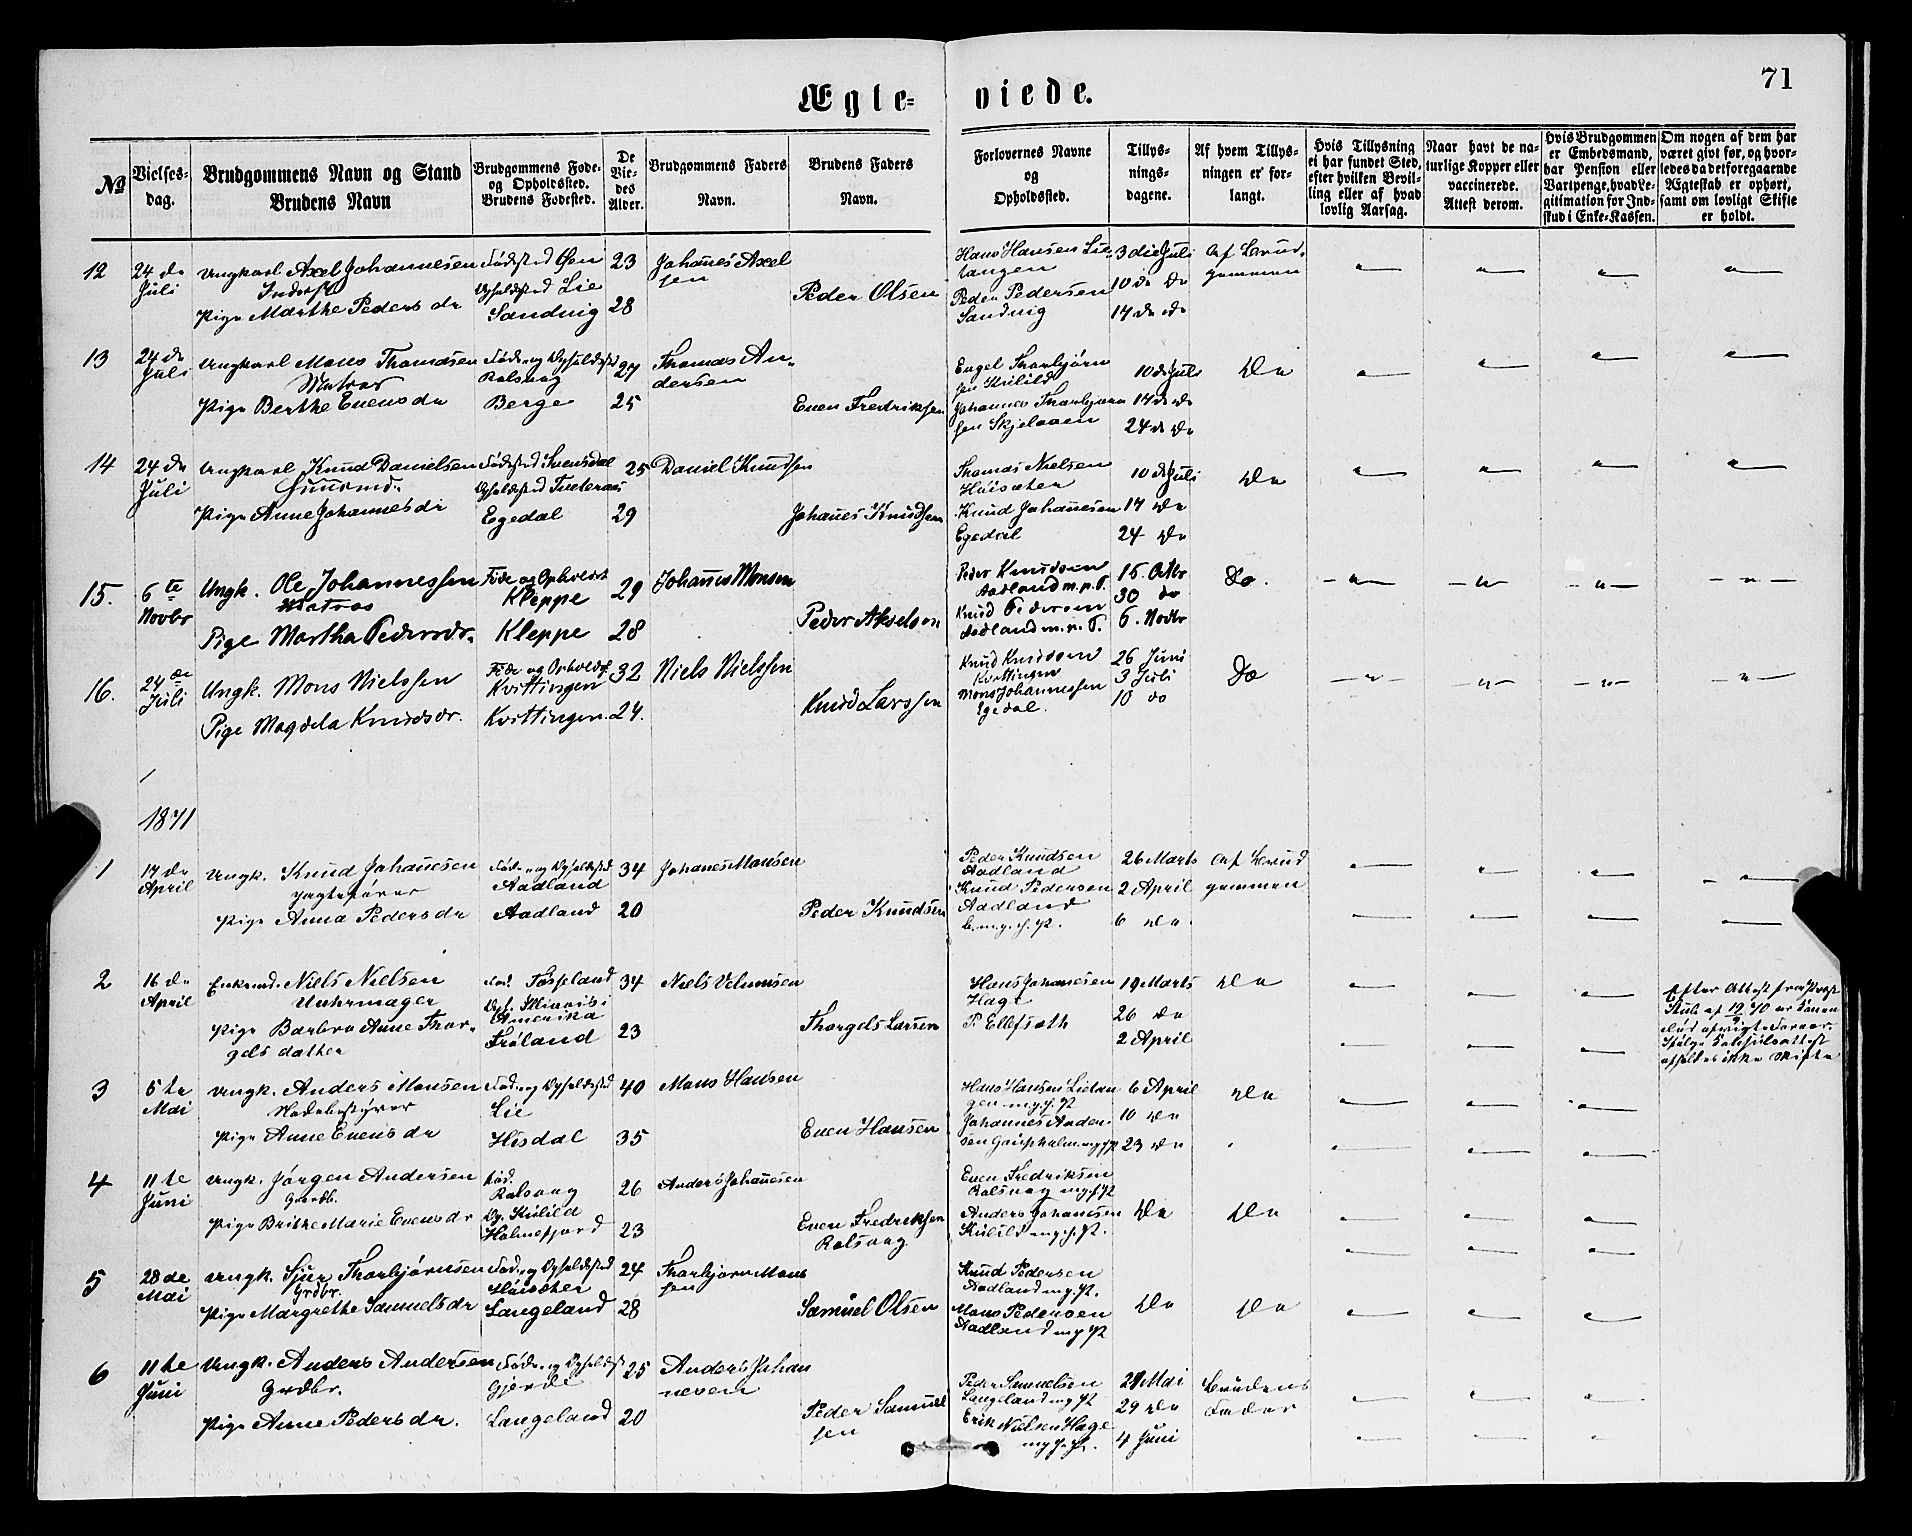 71
Ægte-
viede.
№
Vielses-
dag.
Brudgommens Navn og Stand
Brudens Navn
Brudgommens Føde-
og Opholdssted.
Brudens Fødested.
De
Vie-
des
Alder.
Brudgommens Faders
Navn.
Brudens Faders
Navn.
Forlovernes Navne
og
Opholdssted.
Tillys-
nings-
dagene.
Af hvem Tillys-
ningen er for-
langt.
Hvis Tillysning
ei har fundet Sted,
efter hvilken Bevil-
ling eller af hvad
lovlig Aarsag.
Naar havt de na-
turlige Kopper eller
vaccinerede.
Attest derom.
Hvis Brudgommen
er Embedsmand,
har Pension eller
Vartpenge, hvad Le-
gitimation for Ind-
skud i Enke-Kassen.
Om nogen af dem har
været givt før, og hvor-
ledes da det foregaaende
Ægteskab er ophørt,
samt om lovligt Skifte
er holdt.
12
24 de
Juli
Ungkarl Axel Johannesen
Inderst
Pige Marthe Peders dr
Fødested Øen
Opholdsted Lie
Sandvig
23
28
Johanes Axel
sen
Peder Olsen
Hans Hansen Lie-
tangen
Peder Pedersen
Sandvig
3 die Juli
10 de Do
17 de do
Af Brud-
gommen
13
24 de
Juli
Ungkarl Mons Thomasen
Matros
Pige Berthe Evens dr
Føde- og Opholdsted
Rolsvog
Berge
27
25
Thomas An-
dersen
Even Fredriksen
Engel Thorbjørn
sen Kulild
Johannes Thorbjørn
sen Skjelaaen
10 de Juli
17 de Do
24 de Do
Do
14
24 de
Juli
Ungkarl Knud Danielsen
Huusmd.
Pige Anne Johannes dr
Fødested Svensdal
Opholdsted Tveteraas
Egedal
25
29
Daniel Knudsen
Johanes Knudsen
Thomas Nielsen
Høisæter
Knud Johannesen
Egedal
10 de Juli
17 Do
24 Do
Do
15.
6 te
Novbr
Ungk. Ole Johannessen
Matros
Pige Martha Pedersdr.
Føde og Opholdst
Kleppe
Kleppe
29
28
Johanes Monsen
Peder Akselsen
Peder Knudsen
Aadland m. p. P.
Knud Pedersen
Aadland m. p. P.
15. Octbr
30 do
6. Novbr
Do.
16.
24 de
Juli
Ungk. Mons Nielssen
Pige Magdela Knudsdr.
Føde og Opholdst
Kvittingen
Kvittingen.
32
24.
Niels Nielssen
Knud Larssen
Knud Knudsen
Kvittingen
Mons Johannessen
Egedal.
26 Juni
3 Juli
10 do
Do
1871
1
17 de
April
Ungk. Knud Johanesen
Jagtefører
Pige Anna Peders dr
Føde- og Opholdsted
Aadland
Aadland
34
20
Johanes Monsen
Peder Knudsen
Peder Knudsen
Aadland
Knud Pedersen
Aadland
26 Marts
2 April
6 Do
Af Brud
gommen
2
16 de
April
Enkemd. Niels Nielsen
Uuhrmager
Pige Barbro Anne Thor-
gels datter
Fød. Fosseland
Oph. Illinois i
Amerika
Frøland
34
23
Thorgels Larsen
Hans Johanesen
Hage
P. Ellefsæth
19 Marts
26 Do
2 April
Do
3
5 te
Mai
Ungk. Anders Monsen
Pige Anne Evens dr
Føde- og Opholdsted
Lie
Hisdal
40
35
Mons Hansen
Even Hansen
Hans Hansen Lietan
gen
Johannes Ander-
6 April
10 Do
23 Do
Do
4
11 te
Juni
Ungk. Jørgen Andersen
Grdb.
Pige Brithe Marie Evens dr
Fød.
Rolsvog
Op. Kulild
Holmefjord
26
23
Anders Johanesen
Even Fredriksen
Rolsvog
Even Fredriksen
Rolsvog
Anders Johanesen
Kulild
Do
Do
5
28 de
Mai
Ungk. Sjur Thorbjørnsen
Grdbr.
Pige Margrethe Samuels dr
Føde- og Opholdsted
Høisæter
Langeland
24
28
Thorbjørn Mons
sen
Samuel Olsen
Knud Pedersen
Aadland
Mons Pedersen
Aadland
Do
Do
6
11 te
Juni
Ungk. Anders Andersen
Grdbr.
Pige Anne Peders dr.
Føde- og Opholdst
Gjerde
Langeland
25
20
Anders Johan
nesen
Peder Samuel
sen
Peder Samuelsen
Langeland
Erik Nielsen Hage
21 Mai
29 Do
4 Juni
Brudens
Fader